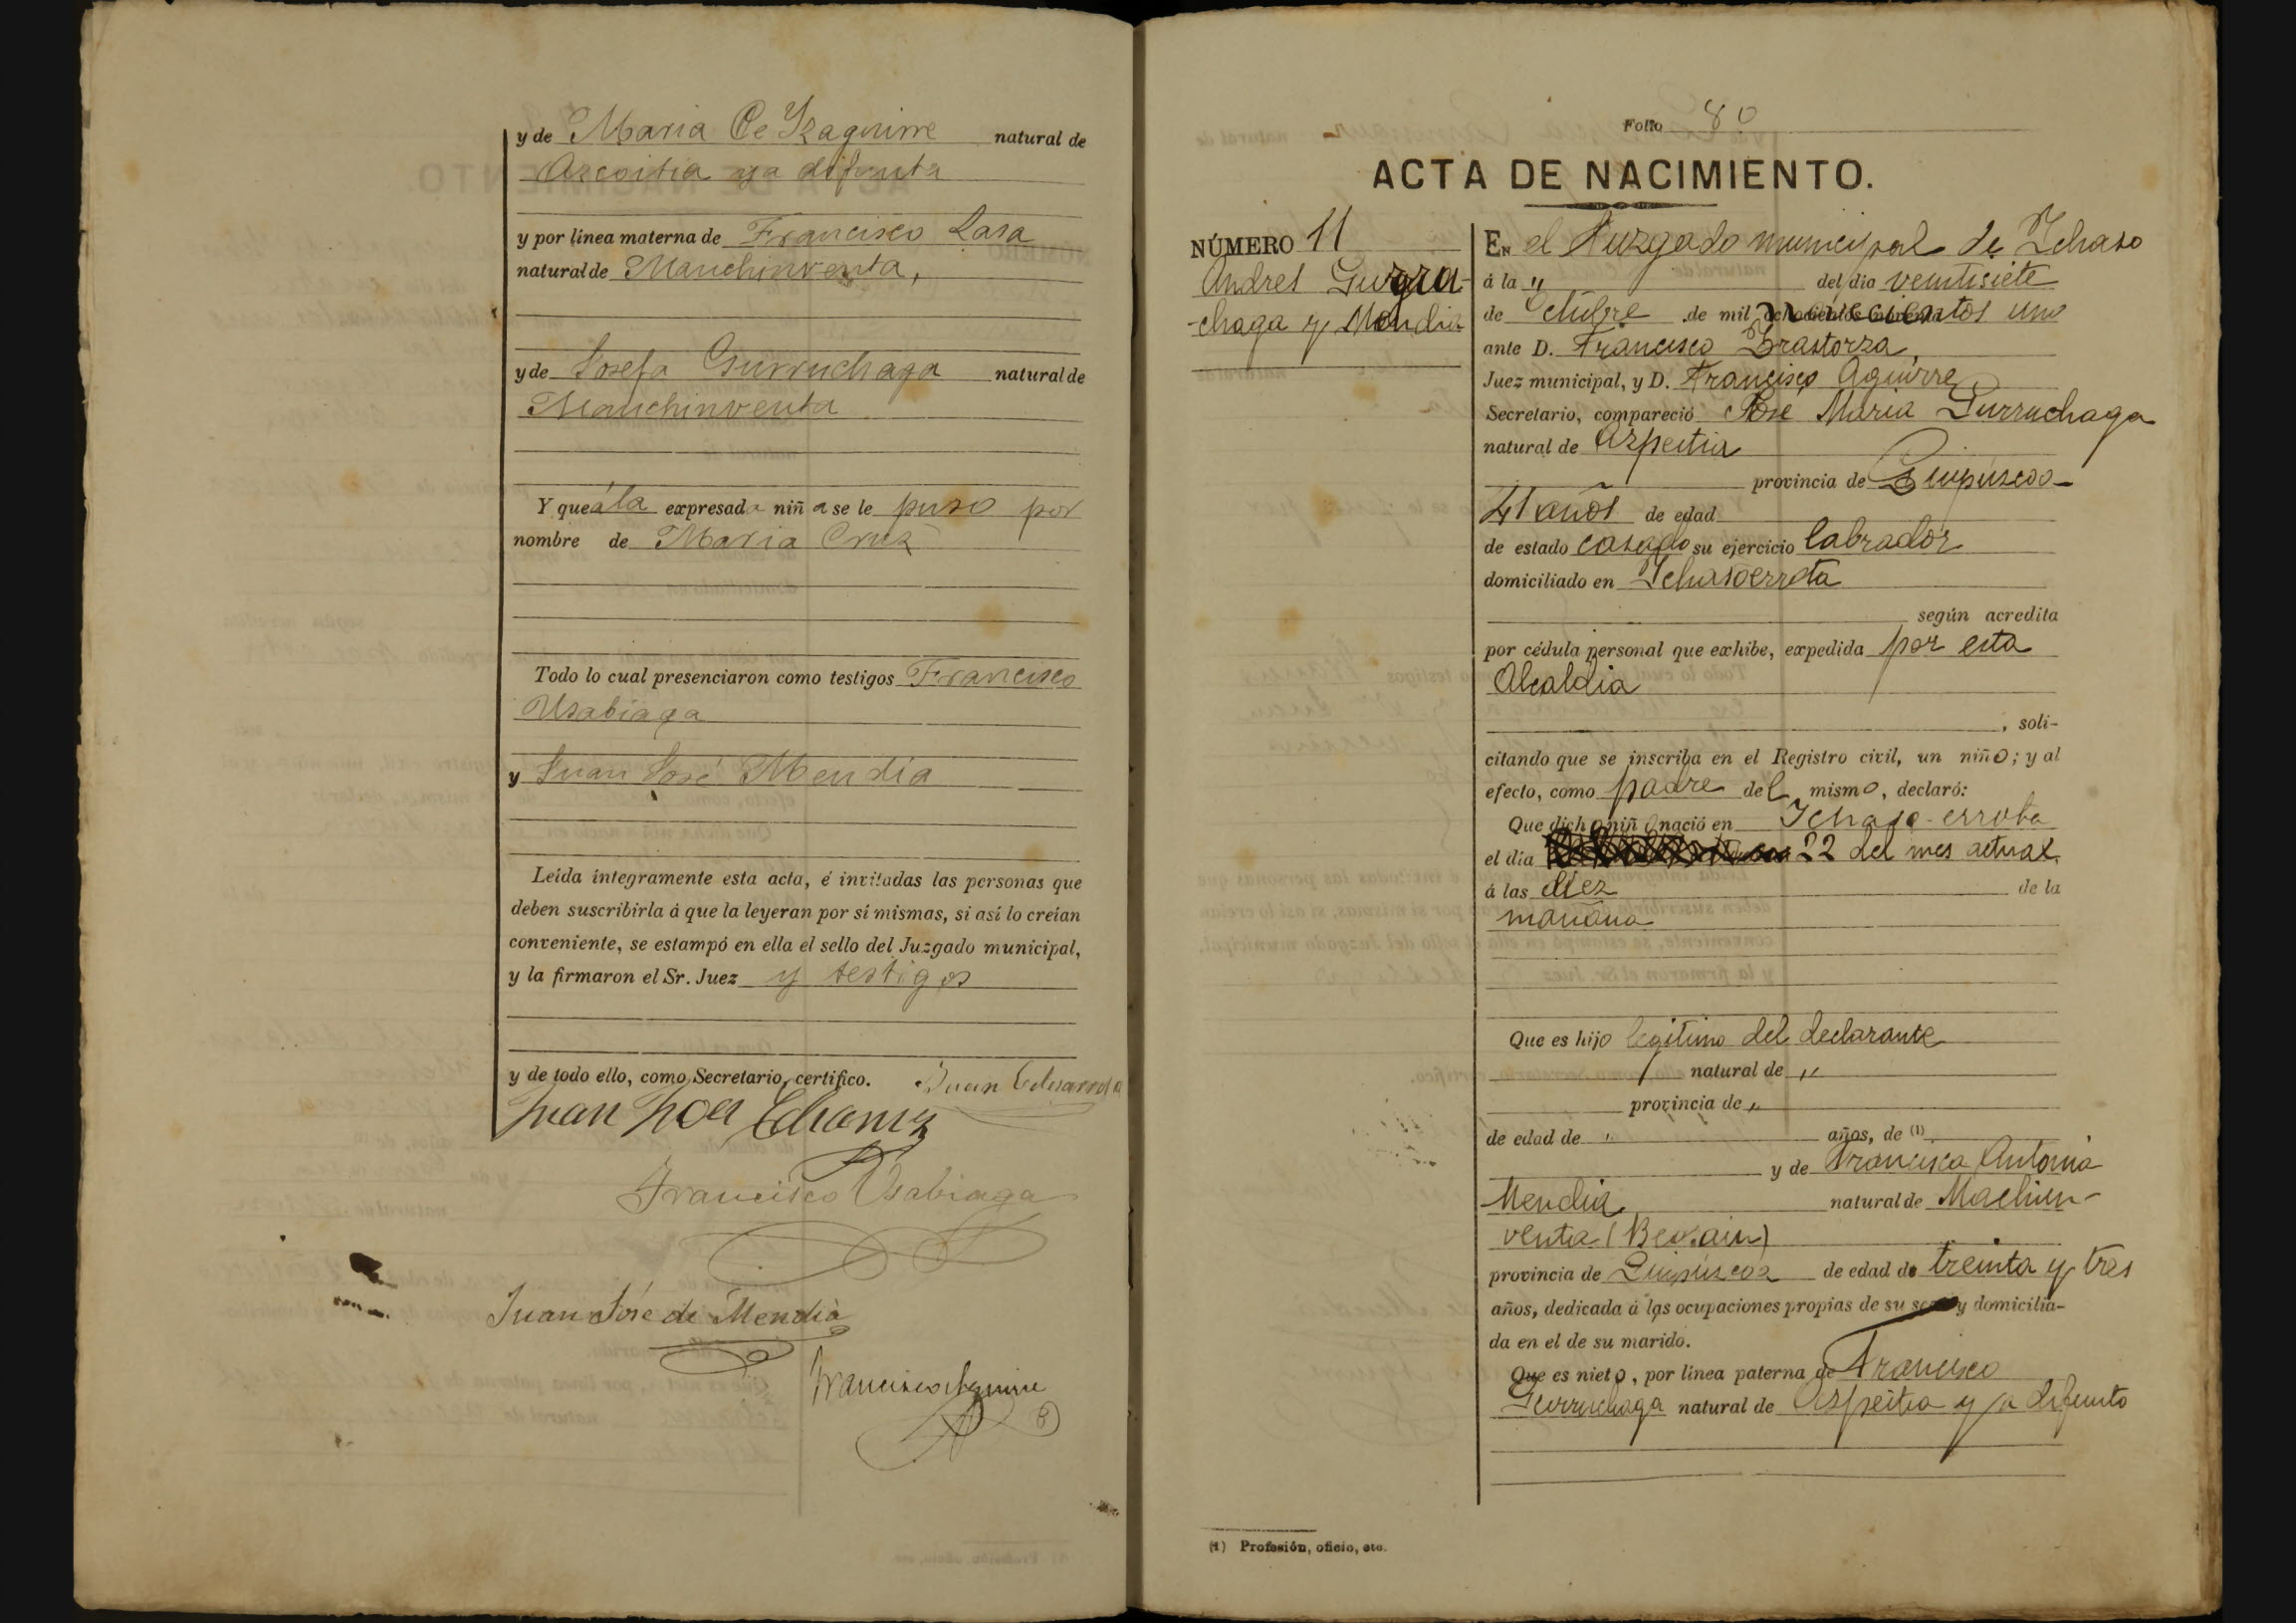 y de Maria Ce Yzaguirre natural de
Azcoitia ya difunta
y por línea materna de Francisco Lasa
natural de Manchinventa,
y de Josefa Gurruchaga natural de
Manchinventa
Y que á la expresada niña se le puso por
nombre de Maria Cruz
Todo lo cual presenciaron como testigos Francisco
Usabiaga
y Juan José Mendia
Leída íntegramente esta acta, é invitadas las personas que
deben suscribirla á que la leyeran por sí mismas, si así lo creían
conveniente, se estampó en ella el sello del Juzgado municipal,
y la firmaron el Sr. Juez y testigos
y de todo ello, como Secretario, certifico. Juan
Juan
Francisco Usabiaga
Juan José de Mendia
Francisco Aguirre
Folio 80
ACTA DE NACIMIENTO.
NÚMERO 11
Andres Gurru-
-chaga y Mendia
EN el Juzgado municipal de Ichaso
á la " del día veintisiete
de Octubre de mil novecientos uno
ante D. Francisco Irastorza,
Juez municipal, y D. Francisco Aguirre,
Secretario, compareció José Maria Gurruchaga
natural de Azpeitia
provincia de Guipúzcoa
41 años de edad
de estado casado su ejercicio labrador
domiciliado en Ichasoerrota
según acredita
por cédula personal que exhibe, expedida por esta
Alcaldia
, soli-
citando que se inscriba en el Registro civil, un niño; y al
efecto, como padre del mismo, declaró:
Que dicho niño nació en Ichaso-errota
el día 22 del mes actual,
á las diez de la
mañana
Que es hijo legitimo del declarante
natural de "
provincia de "
de edad de " años, de (1)
y de Francisca Antonia
Mendia natural de Machin-
venta (Beasain)
provincia de Guipúzcoa de edad de treinta y tres
años, dedicada á las ocupaciones propias de su sexo y domicilia-
da en el de su marido.
Que es nieto, por línea paterna de Francisco
Gurruchaga natural de Azpeitia ya difunto
(1) Profesión, oficio, etc.